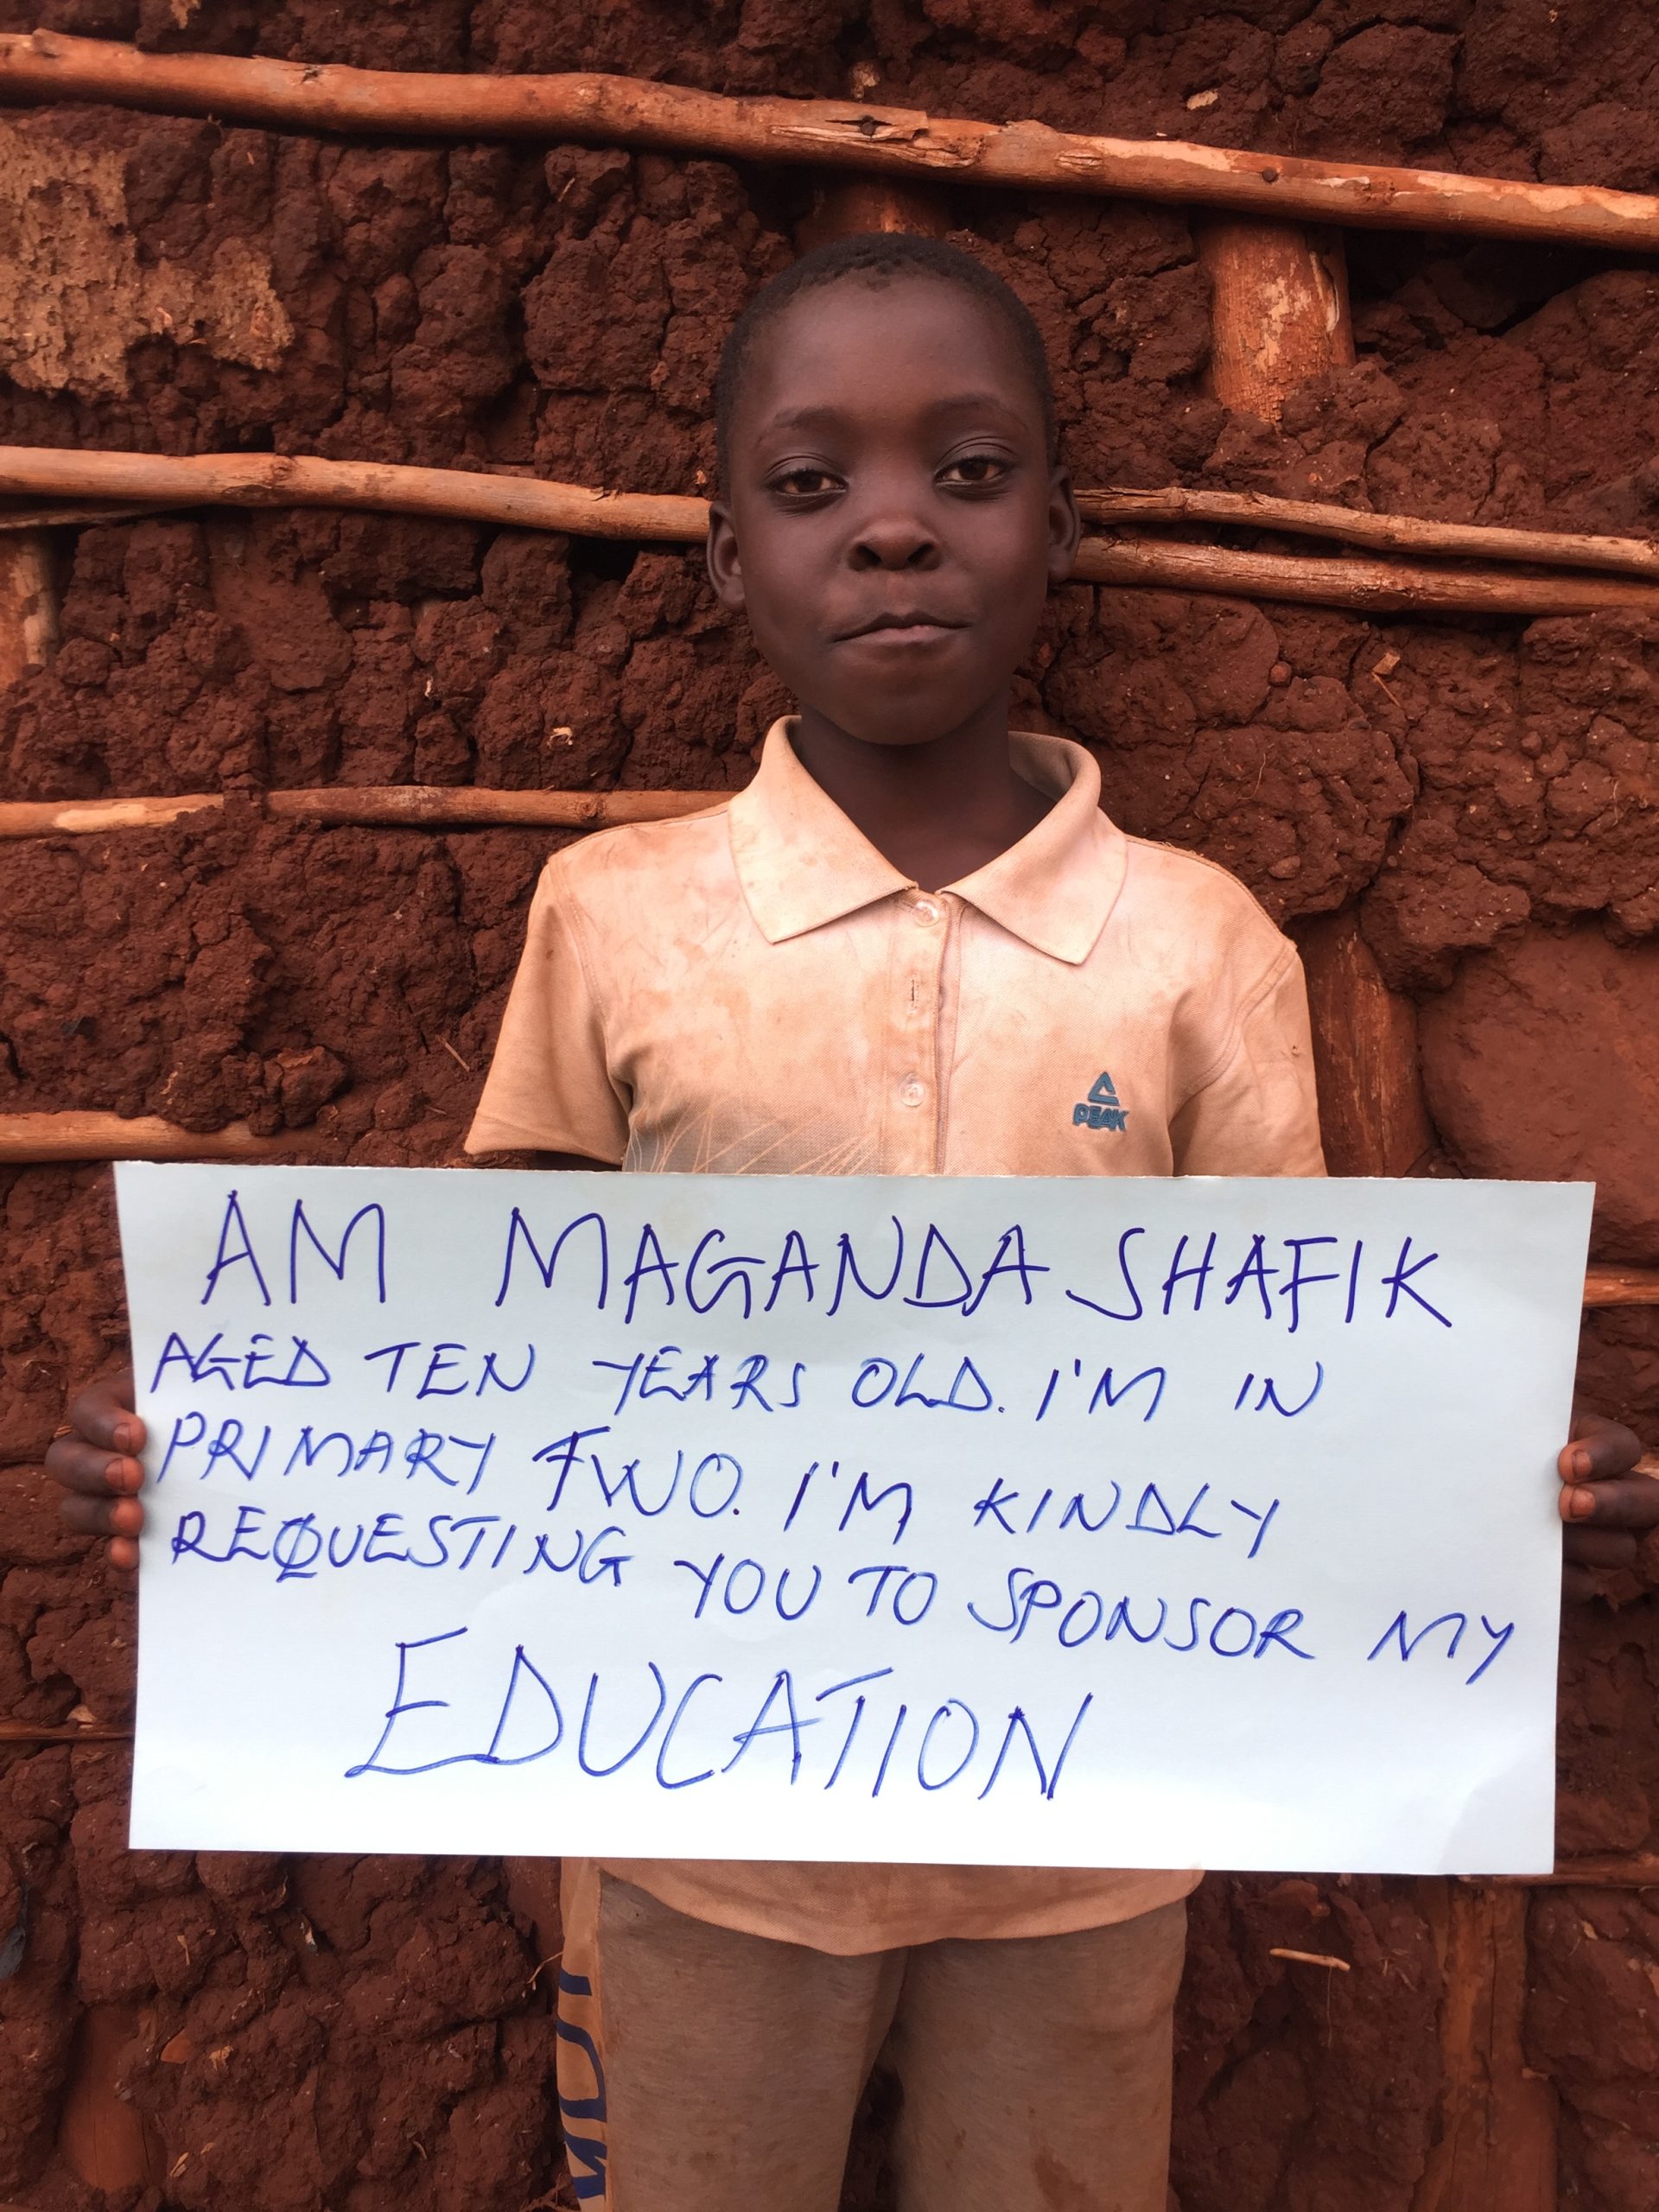 PEAK
AM MAGANDA SHAFIK
AGED TEN YEARS OLD. I'M IN
PRIMARY TWO. I'M KINDLY
REQUESTING YOU TO SPONSOR MY
EDUCATION